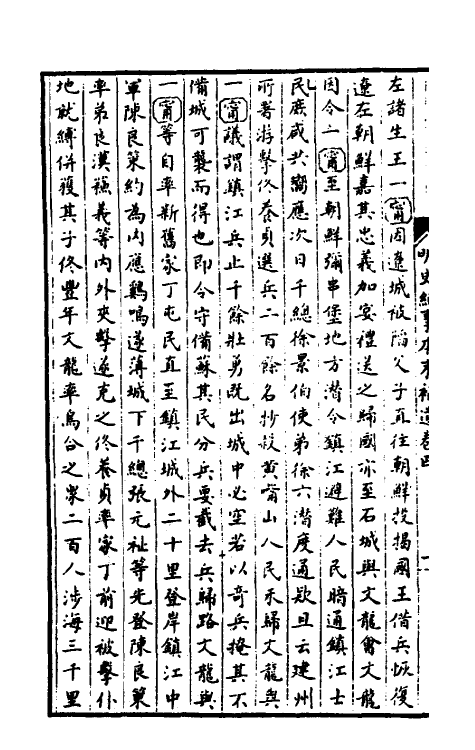 左諸生王一甯因遼城被陷父子直往朝鮮投揭國王借兵恢復
遼左朝鮮嘉其忠義加宴禮送之歸國亦至石城與文龍會文龍
因令一甯至朝鮮彌串堡地方潛令鎮江避難人民暗通鎮江士
民庶咸共嚮應次日千總徐景伯使弟徐六潛度通欵且云建州
所署游擊佟養貞選兵二百餘名抄殺黃嘴山人民未歸文龍與
一甯議謂鎮江兵止千餘壯勇既出城中必空若以奇兵掩其不
備城可襲而得也即令守備蘇其民分兵要截去兵歸路文龍與
一甯等自率新舊家丁屯民直至鎮江城外二十里登岸鎮江中
軍陳良策約為内應鷄鳴遂薄城下千總張元祉等先登陳良策
率弟良漢蘇義等内外夾擊遂克之佟養貞率家丁前迎被擊仆
地就縛併獲其子佟豐年文龍率烏合之衆二百人涉海三千里
明史紀事本末補遺卷四